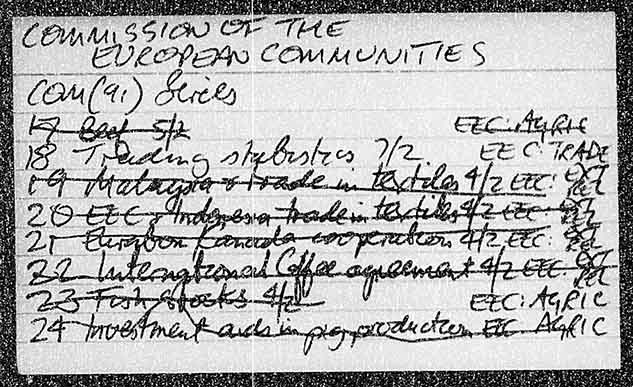 COMMISSION OF THE
EUROPEAN COMMUNITIES
COM(91) Series
17 Beef 5/2 EEC: AGRIC
18 Trading statistics 7/2 EEC: TRADE
19 Malaysia trade in textiles 4/2 EEC: EXT Rel
20 EEC Indonesia trade in textiles 4/2 EEC: EXT Rel
21 Canada cooperation 4/2 EEC: EXT Rel
22 International Coffee agreement 4/2 EEC: EXT Rel
23 Fish stocks 4/2 EEC: AGRIC
24 Investment aids in pig production EEC AGRIC